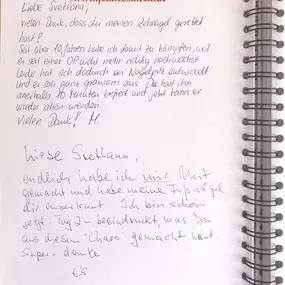 Liebe Svetlana,
vielen Dank, dass du meinen Zehnagel gerettet
hast!
Seit über 10 Jahren habe ich damit zu kämpfen, weil
er seit einer OP nicht mehr richtig nachwächst
Leider hat sich dadurch ein Nagelpilz entwickelt
und er sah ganz grausam aus. Du hast ihn
innerhalb 10 Minuten befreit und jetzt kann er
wieder schön werden.
Vielen Dank! M.
Liebe Svetlana,
endlich habe ich mir Mut
gemacht und habe meine Fußnägel
dir anvertraut. Ich bin schon
jetzt - Tag 2 - beeindruckt, was Du
aus diesem "Chaos" gemacht hast.
Super - danke